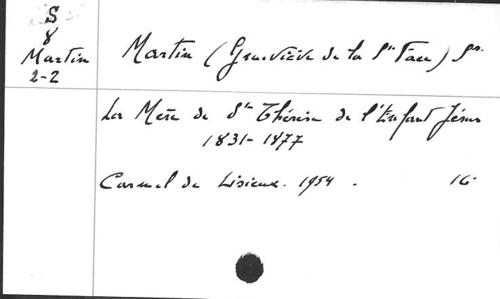 S
8
Martin
2-2
Martin (Geneviève de la Ste Face) Sr.
La Mère de Ste Thérèse de l'Enfant Jésus
1831-1877
Carmel de Lisieux. 1954. 16.